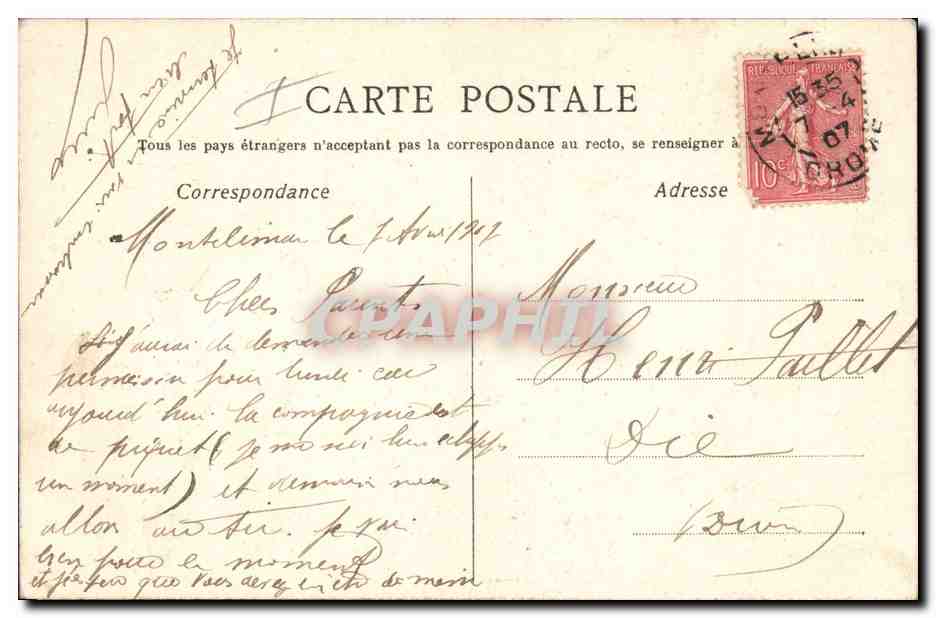 CARTE POSTALE
Tous les pays étrangers n'acceptant pas la correspondance au recto, se renseigner à
Correspondance
Adresse
RÉPUBLIQUE FRANÇAISE
10c
15 35
7 4
07
DROME
Montelimar le 7 Avril 1907
Chers Parents
j'aurai de
permission pour lundi car
aujourd'hui la compagnie est
de piquet (je me suis
un moment) et demain nous
allons au tir. je vai
bien pour le moment
et que vous
Je termine en
bien fort
Monsieur
Henri Paillet
Die
Drôme
CPAPHIL